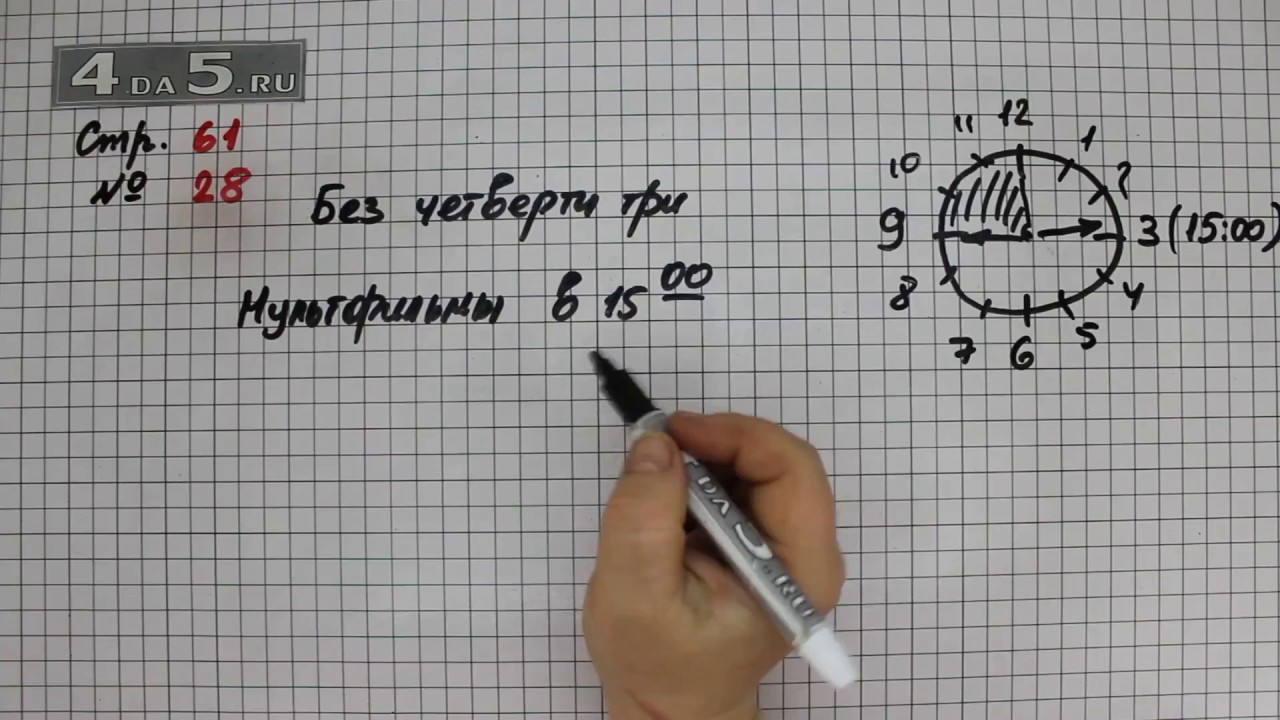 4.DA5.RU
Стр. 61
№ 28
Без четверти три
Мультфильмы в 15 00
12
1
2
3 (15:00)
4
5
6
7
8
9
10
11
DA5.RU